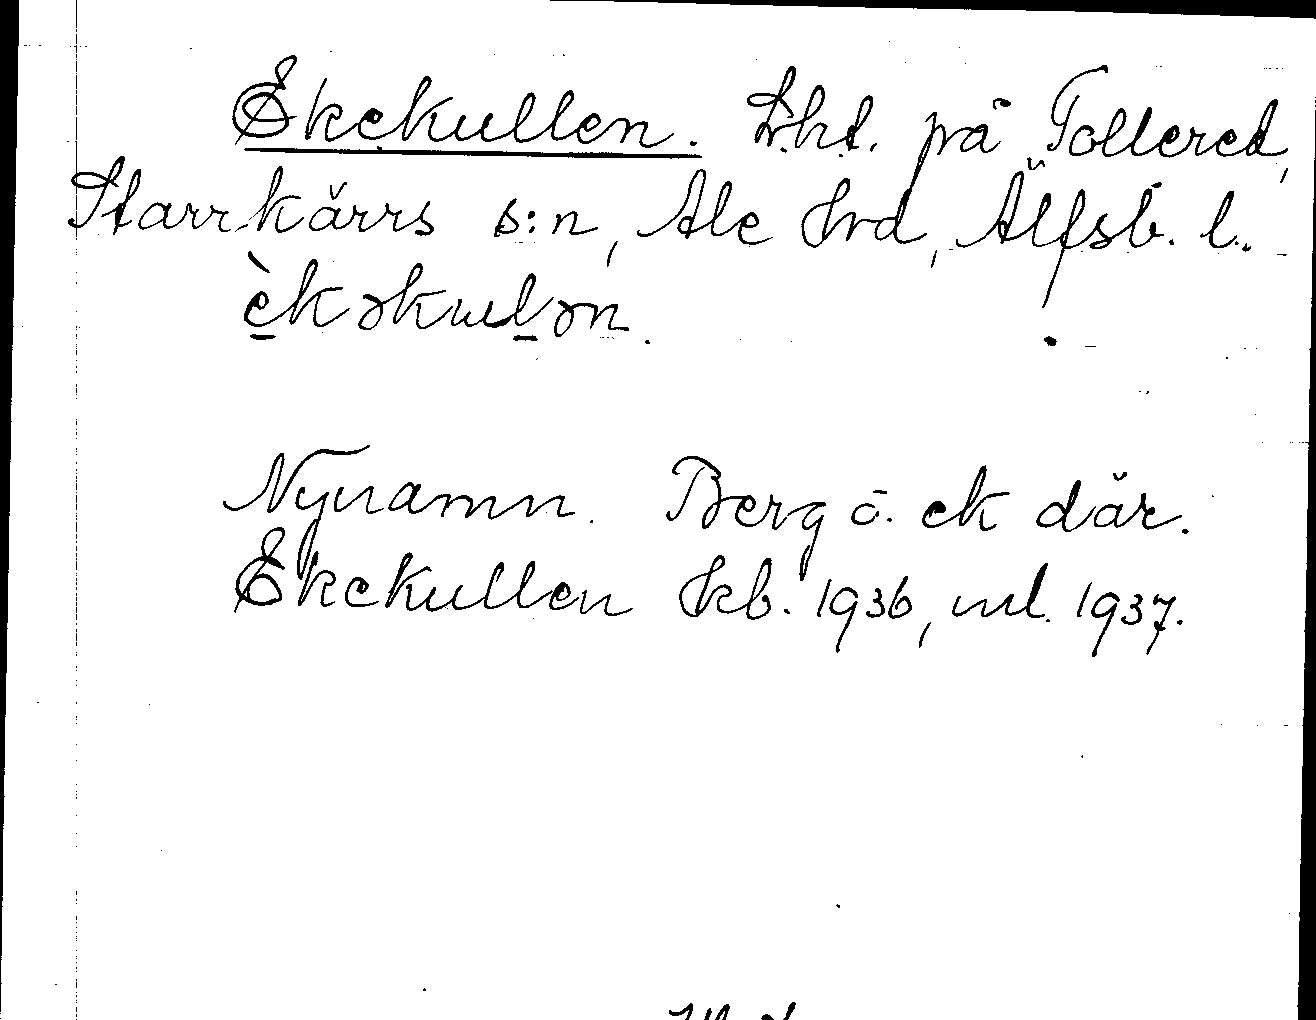 Ekekullen. Lht. på Tollered,
Starrkärrs s:n, Ale hrd, Älfsb. l.
èkəkuḻən.
Nynamn. Berg o. ek där.
Ekekullen kb. 1936, ml. 1937.